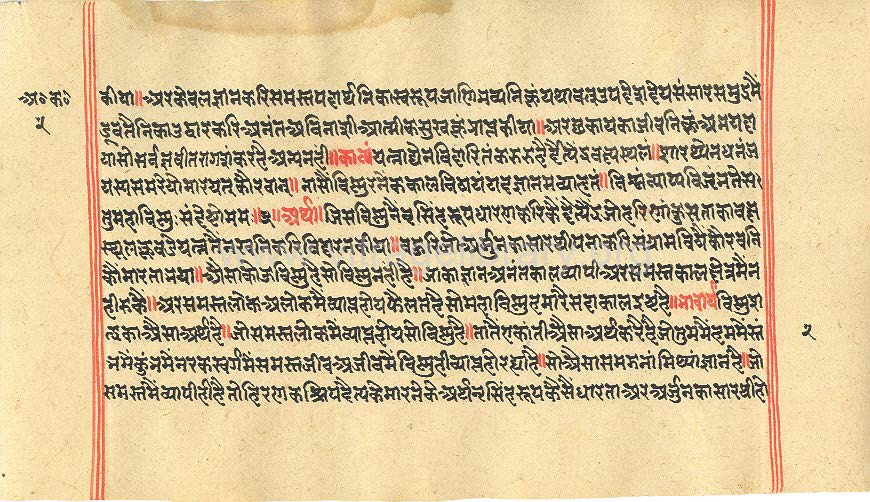 अ॰ क॰
२
कीया॥ अर केवलज्ञानकरि समस्त पदार्थनिका स्वरूप जाणि भव्यनिकूं यथावत् उपदेश देय संसारसमुद्रमैं
डूबतेनिका उद्धार करि अनंत अविनाशी आत्मीक सुखकूं प्राप्त कीया॥ अर छकायका जीवनिकूं अभयदा
या सो सर्वज्ञ वीतराग शंकर है अन्य नही॥ काव्यं॥ यत्नाद्येन विदारितं कररुहैर्दैत्येंद्रवक्षस्थलं॥ सारथ्येन धनंज
यस्य समरे योमारयत्कौरवान्॥ नासौ विस्नुरनेककालविषयं यद् ज्ञानमव्याहतं॥ विश्वं व्याप्य विजृंभते स
तु महाविस्नुः सदेष्टो मम॥२॥ अर्थ॥ जिस विस्नुनै नृसिंहरूप धारण करिकै दैत्येंद्र जो हरिणांकुस ताका वक्ष
स्थलकूं बडे यत्नतै नखनिकरि विदारन कीया॥ बहुरि जो अर्जुनका सारथीपना करि संग्रामविषै कौरवनि
कौ मारता भया॥ औसा कोउ विस्नु है सो विस्नु नही है॥ जाका ज्ञान अनंतकालव्यापी अर समस्त काल क्षेत्रमै न
ही रुकै॥ अर समस्त लोक अलोकमै व्याप्त होय फैलत है सो महाविस्नु हमारै सदाकाल इष्ट है॥ भावार्थ विस्नुश
ब्दका औसा अर्थ है॥ जो समस्त लोकमै व्याप्त होय सो विस्नु है॥ तातै एकांती औसा अर्थ करै है जो तुममै हममै स्तं
भमै कुंभमै नरक स्वर्गमै समस्त जीव अजीवमै विस्नु ही व्याप्त हो रह्या है॥ सो औसा समझना मिथ्याज्ञान है॥ जो
समस्तमैं व्यापी ही है तो हिरणकश्यिप दैत्यके मारनेके अर्थ नृसिंहरूप कैसै धारता अर अर्जुनका सारथी हो
२